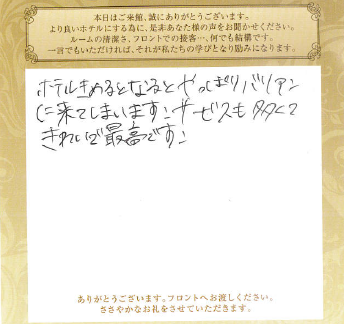 本日はご来館、誠にありがとうございます。
より良いホテルにする為に、是非あなた様の声をお聞かせください。
ルームの清潔さ、フロントでの接客…、何でも結構です。
一言でもいただければ、それが私たちの学びとなり励みになります。
ホテルきめるとなるとやっぱりバリアン
に来てしまいます!!サービスも多くて
きれいで最高です!!
ありがとうございます。フロントへお渡しください。
ささやかなお礼をさせていただきます。